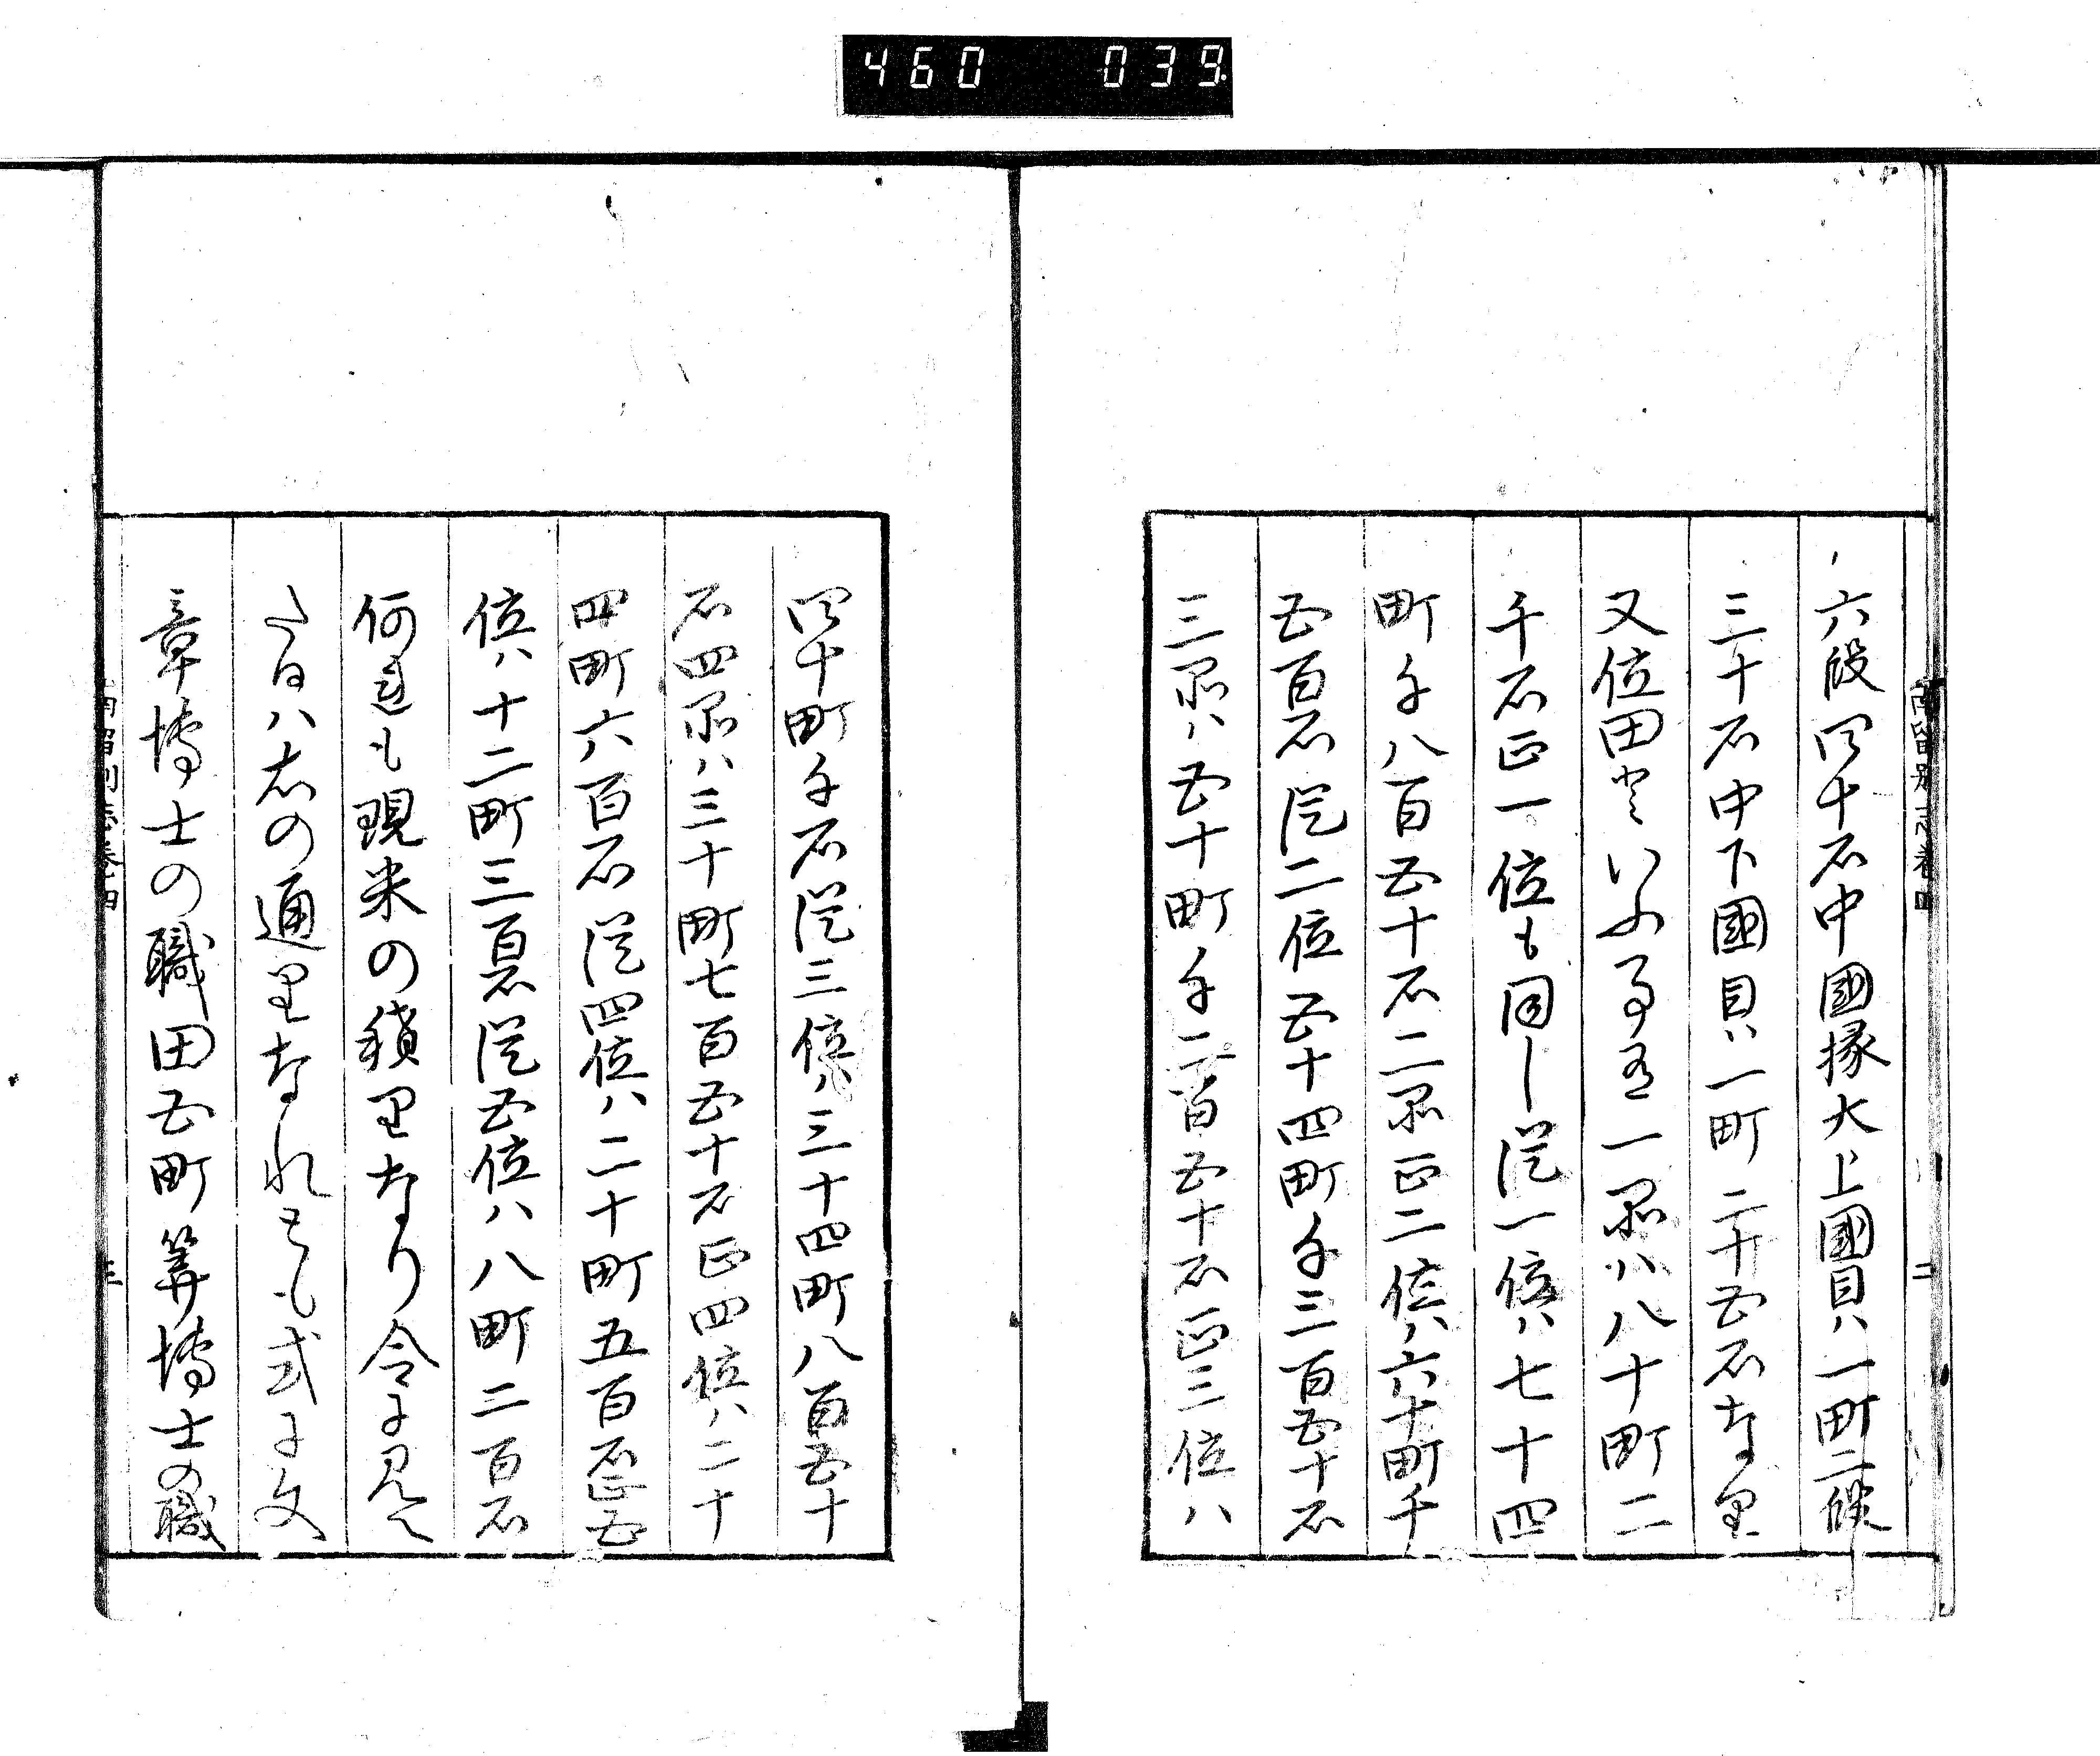 460 039
六段四十石中國掾大上國目ハ一町二段
三十石中下國目ハ一町二十五石なり
又位田といふ事有一品ハ八十町二
千石正一位も同し従一位ハ七十四
町千八百五十石二品正二位ハ六十町千
五百石従二位五十四町千三百五十石
三品ハ五十町千二百五十石正三位ハ
四十町千石従三位ハ三十四町八百五十
石四品ハ三十町七百五十石正四位ハ二十
四町六百石従四位ハ二十町五百石正五
位ハ十二町三百石従五位ハ八町二百石
何連も現米の積里なり令に見へ
たるハ右の通里なれとも式に文
章博士の職田五町筭博士の職
二
三